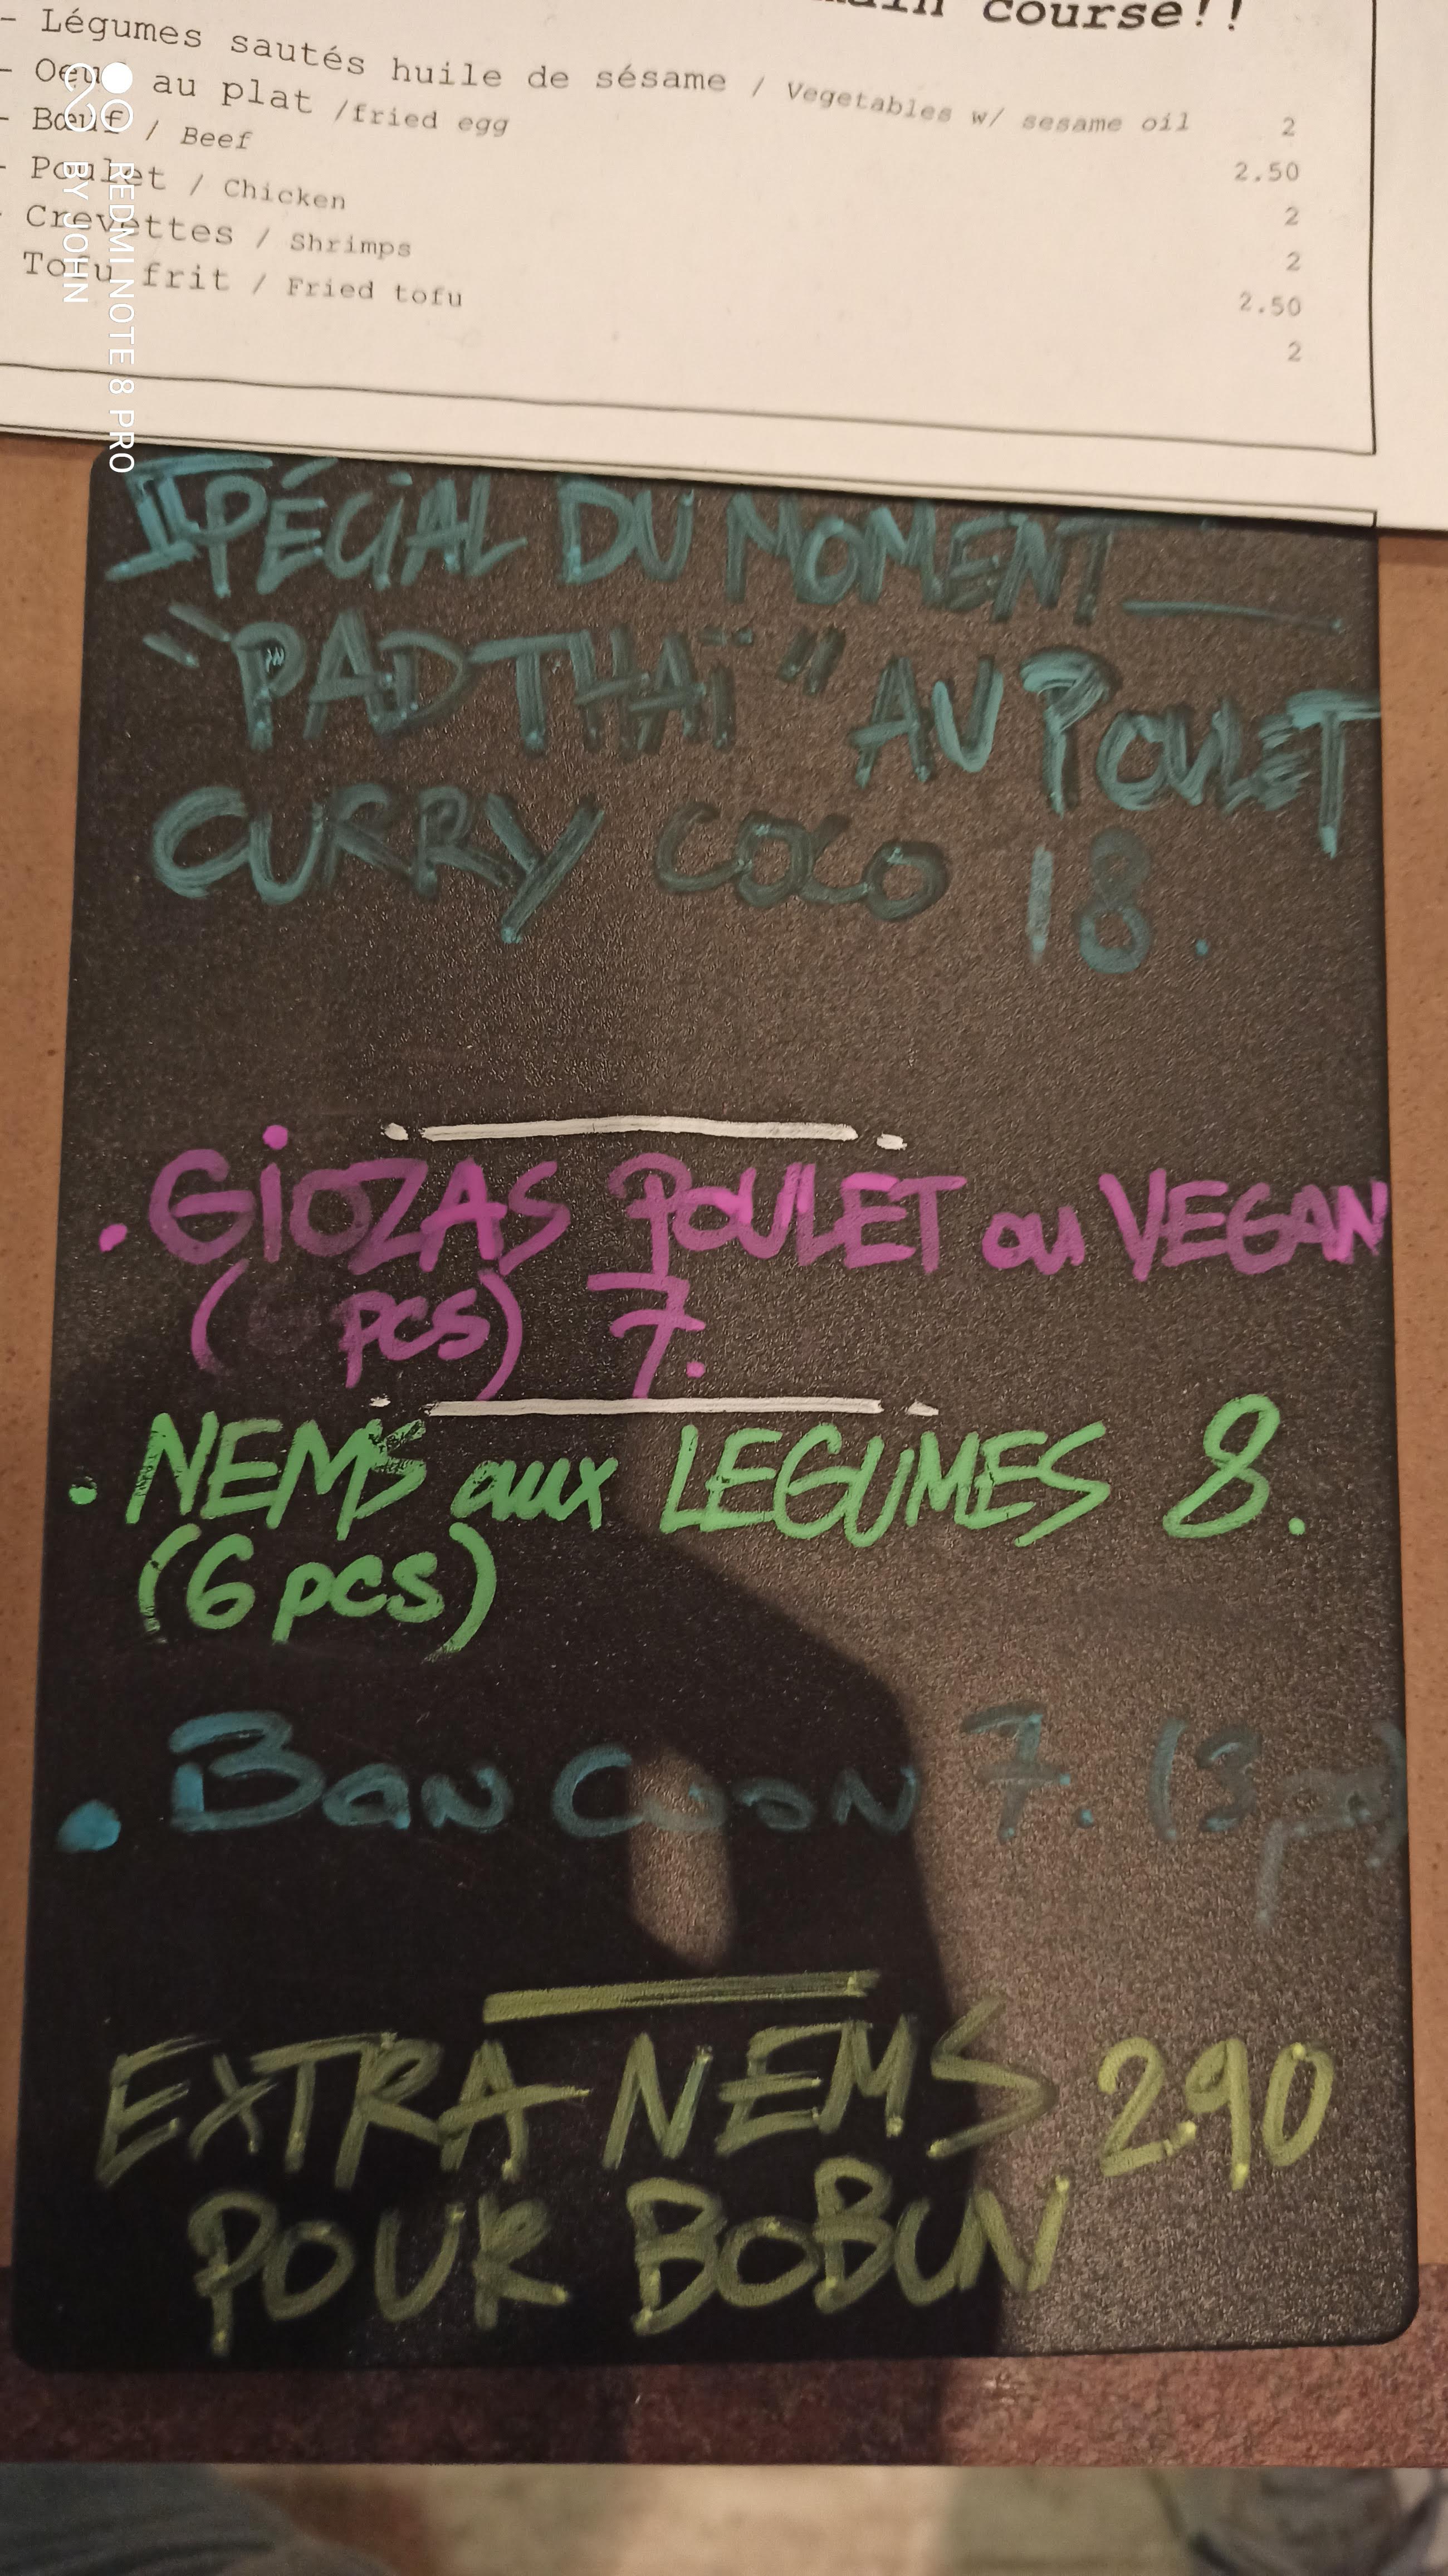 main course!!
- Légumes sautés huile de sésame / Vegetables w/ sesame oil 2
- Oeuf au plat /fried egg 2.50
- Bœuf / Beef 2
- Poulet / Chicken 2
- Crevettes / Shrimps 2.50
Tofu frit / Fried tofu 2
REDMI NOTE 8 PRO
BY JOHN
SPÉCIAL DU MOMENT
"PAD THAÏ" AU POULET
CURRY COCO 18.
. GIOZAS POULET ou VEGAN
( pcs) 7.
. NEMS aux LEGUMES 8.
(6 pcs)
. BAN CUON 7. (3
EXTRA NEMS 2.90
POUR BOBUN